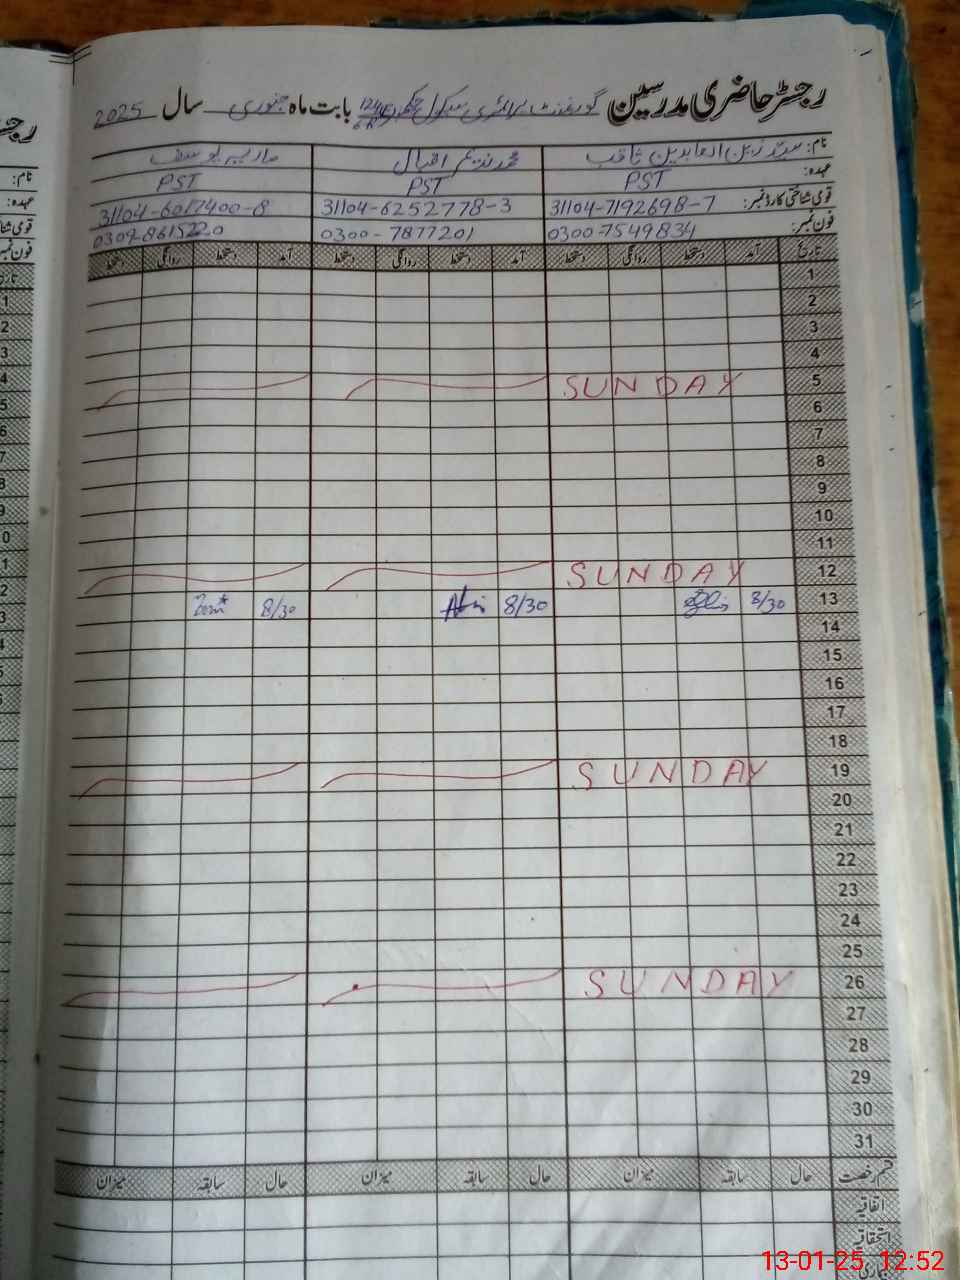 رجسٹر حاضری مدرسین گورنمنٹ پرائمری سکول چک بابت ماہ جنوری سال 2025
نام: سید زین العابدین ثاقب محمد ندیم اقبال ماریہ یوسف
عہدہ: PST PST PST
قومی شناختی کارڈ نمبر: 31104-7192698-7 31104-6252778-3 31104-6017400-8
فون نمبر: 0300-7549834 0300-7877201 0309-8615220
تاریخ آمد دستخط روانگی دستخط آمد دستخط روانگی دستخط آمد دستخط روانگی دستخط
1
2
3
4
5 SUNDAY
6
7
8
9
10
11
12 SUNDAY
13 8/30 8/30 8/30
14
15
16
17
18
19 SUNDAY
20
21
22
23
24
25
26 SUNDAY
27
28
29
30
31
قسم رخصت حال سابقہ میزان حال سابقہ میزان حال سابقہ میزان
اتفاقیہ
استحقاقیہ
13-01-25, 12:52